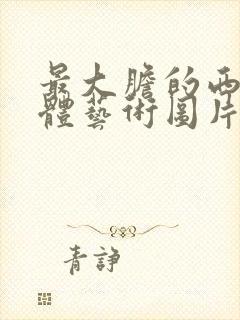 最大膽的西
體藝術圖片
青諍